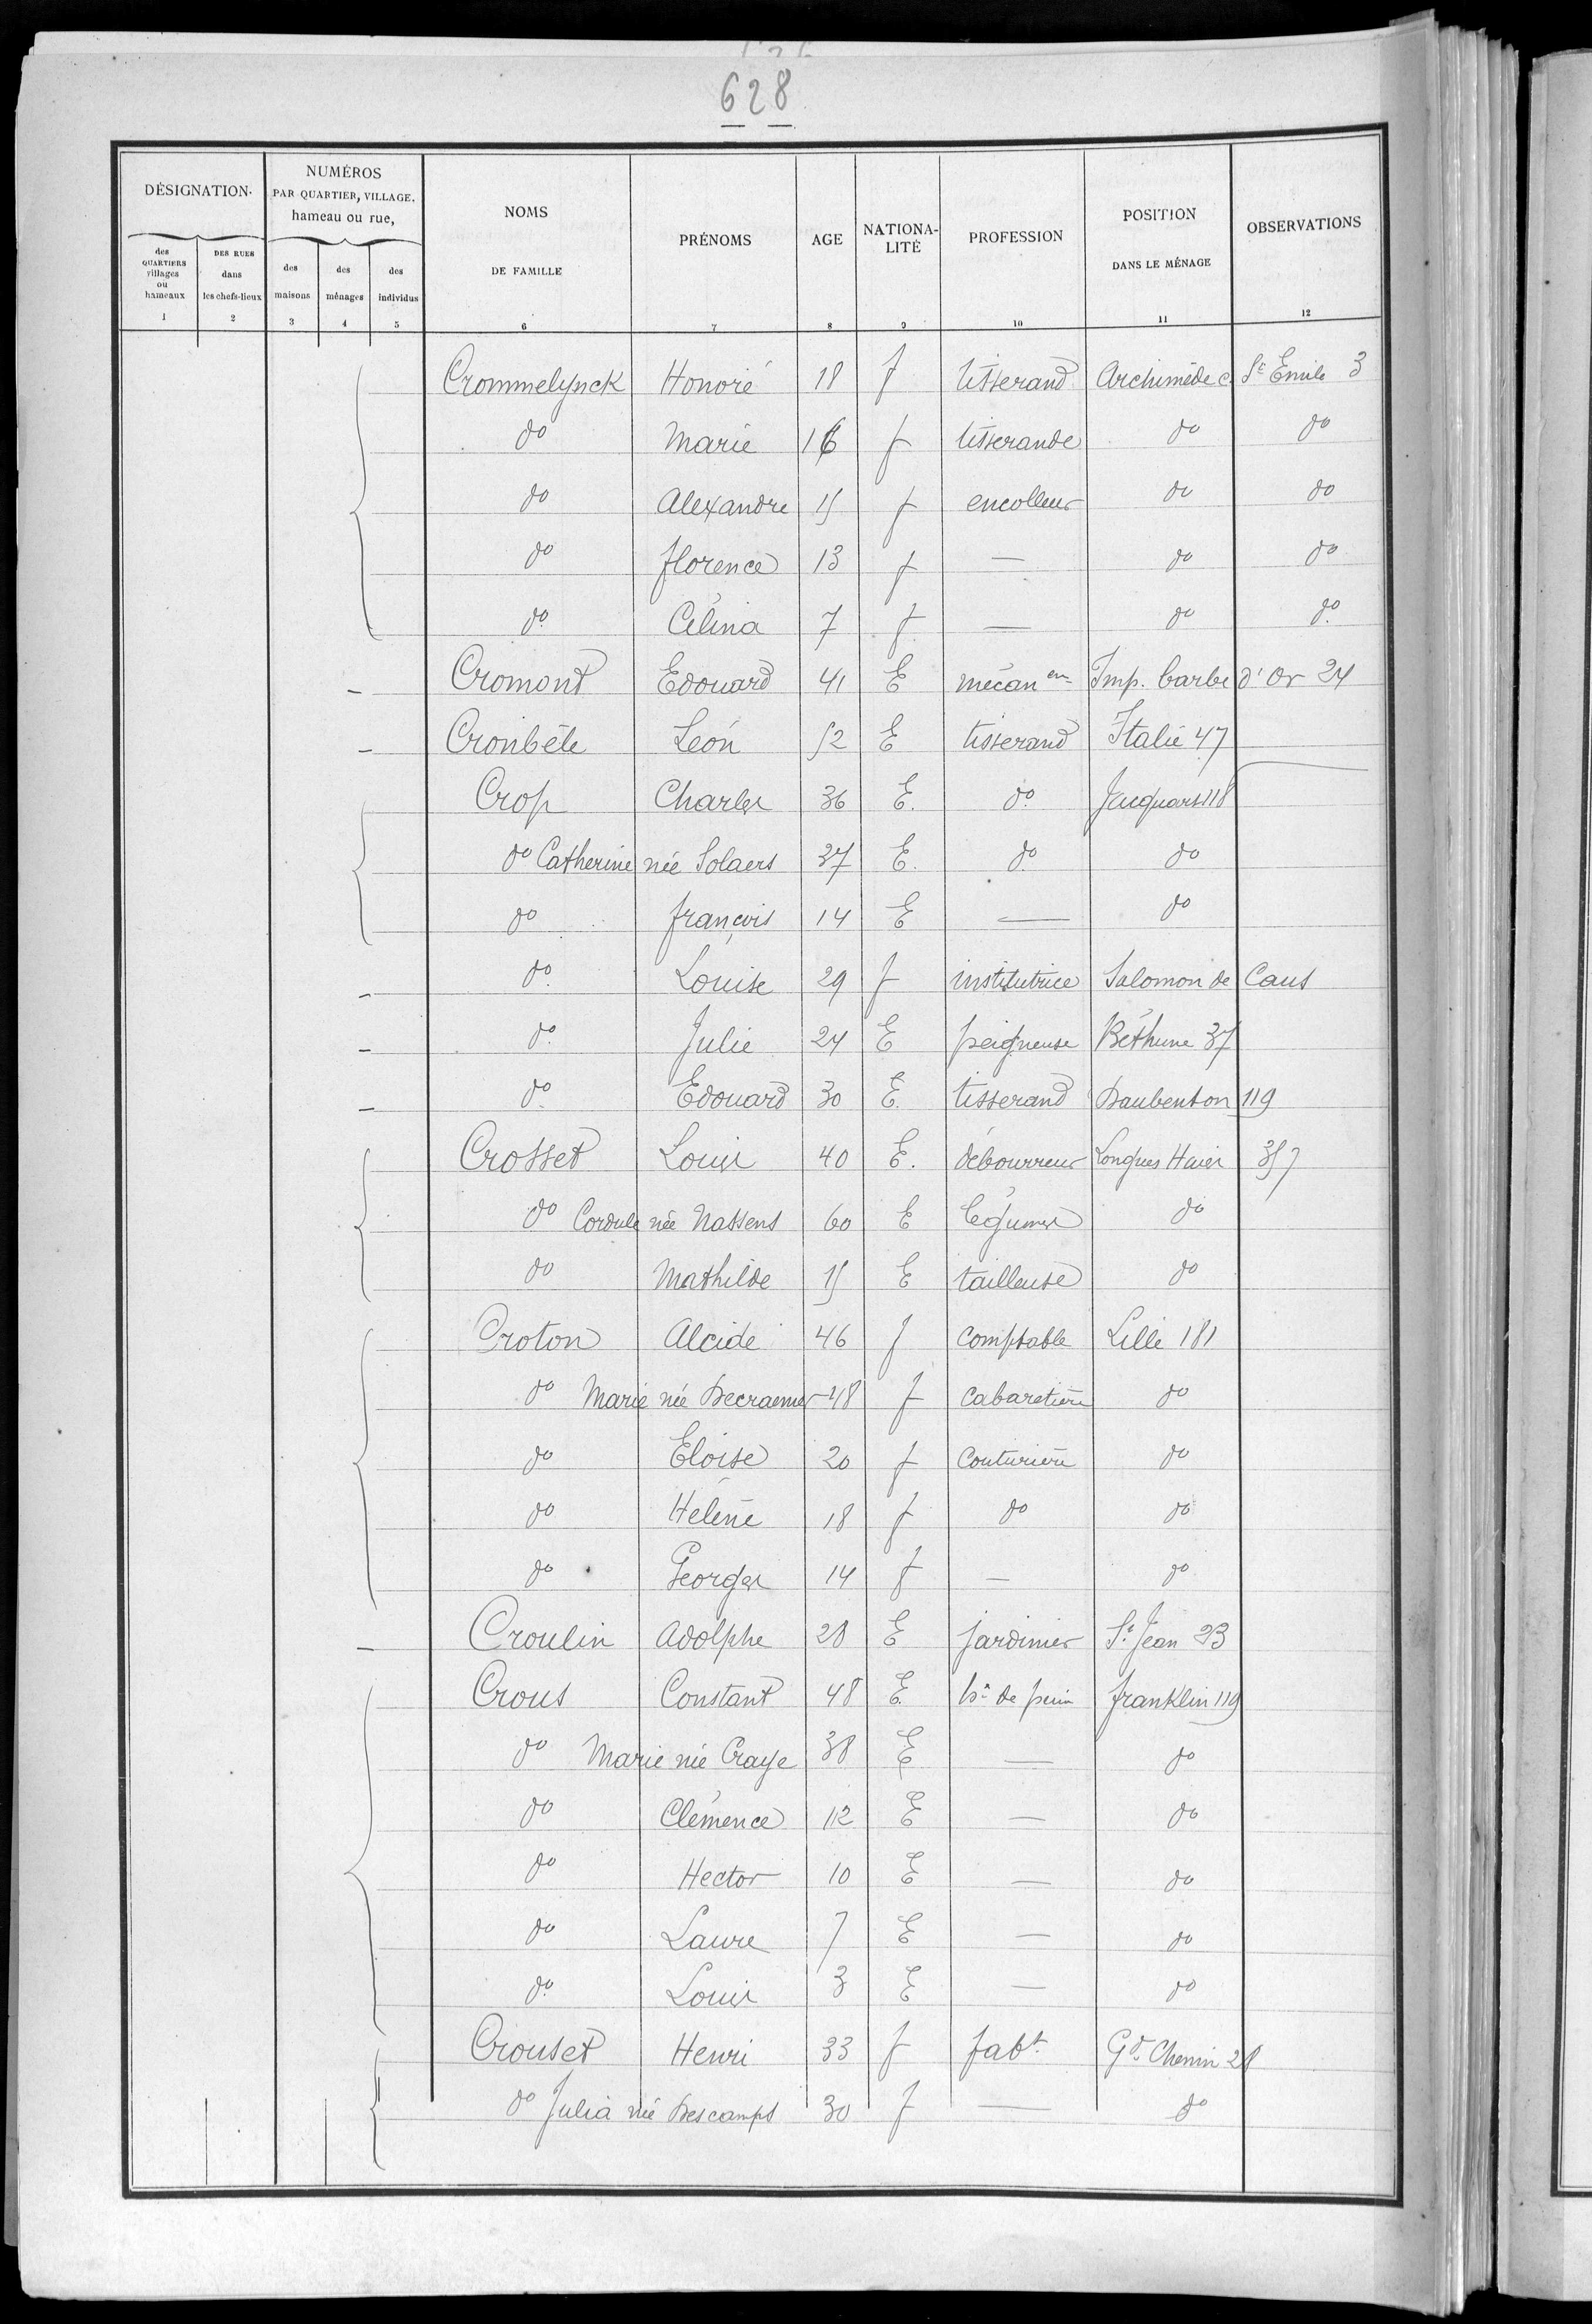 628
DÉSIGNATION
NUMÉROS
PAR QUARTIER, VILLAGE.
hameau ou rue,
NOMS
DE FAMILLE
PRÉNOMS
AGE
NATIONA-
LITÉ
PROFESSION
POSITION
DANS LE MÉNAGE
OBSERVATIONS
des QUARTIERS villages ou hameaux
DES RUES dans les chefs-lieux
des maisons
des ménages
des individus
1 2 3 4 5 6 7 8 9 10 11 12
Crommelynck Honoré 18 f tisserand Archimède c. St Emile 3
do Marie 16 f tisserande do do
do Alexandre 15 f encolleur do do
do florence 13 f — do do
do Célina 7 f — do do
Cromont Edouard 41 E mécanen Imp. barbe d'Or 24
Cronbéte Léon 52 E tisserand Italie 47
Crop Charles 36 E. do Jacquart 118
do Catherine née Solaers 37 E. do do
do françois 14 E — do
do Louise 29 f institutrice Salomon de Caus
do Julie 24 E peigneuse Béthune 37
do Edouard 30 E. tisserand Daubenton 119
Crosset Louis 40 E. débourreur Longues Haies 357
do Cordule née Nassens 60 E légumes do
do Mathilde 15 E tailleuse do
Croton Alcide 46 f comptable Lille 181
do Marie née Decraemer 48 f cabaretière do
do Eloïse 20 f couturière do
do Hélène 18 f do do
do Georges 14 f — do
Croulin Adolphe 28 E jardinier St Jean 23
Crous Constant 48 E. de franklin 119
do Marie née Craye 38 E — do
do Clémence 12 E — do
do Hector 10 E — do
do Laure 7 E — do
do Louis 3 E — do
Crouset Henri 33 f fabt Gd Chemin 28
do Julia née Descamps 30 f — do